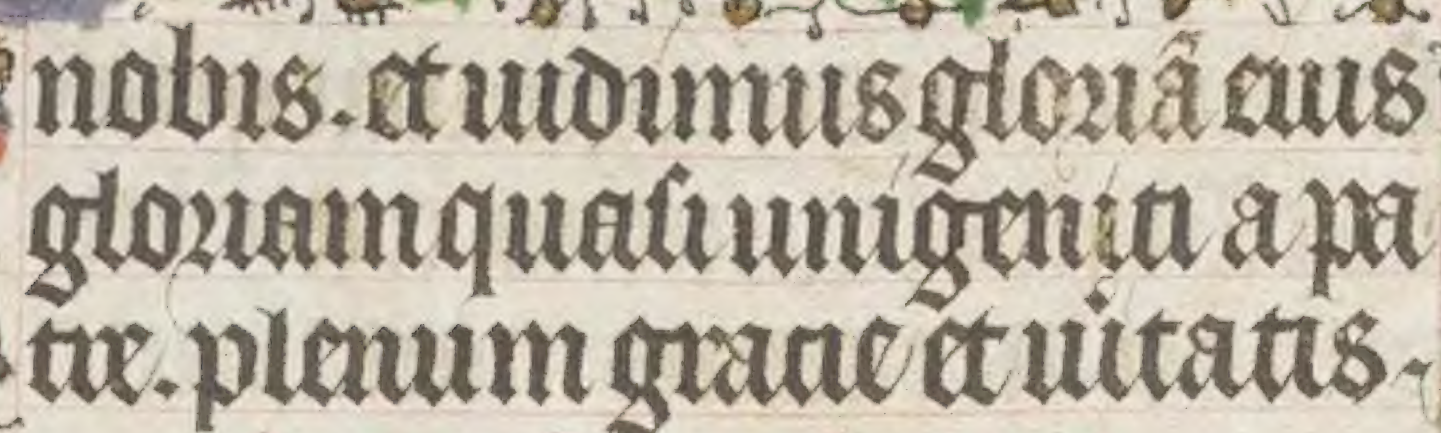 nobis. et uidimus gloriã eius
gloriam quasi unigeniti a pa
tre. plenum gracie et uitatis.